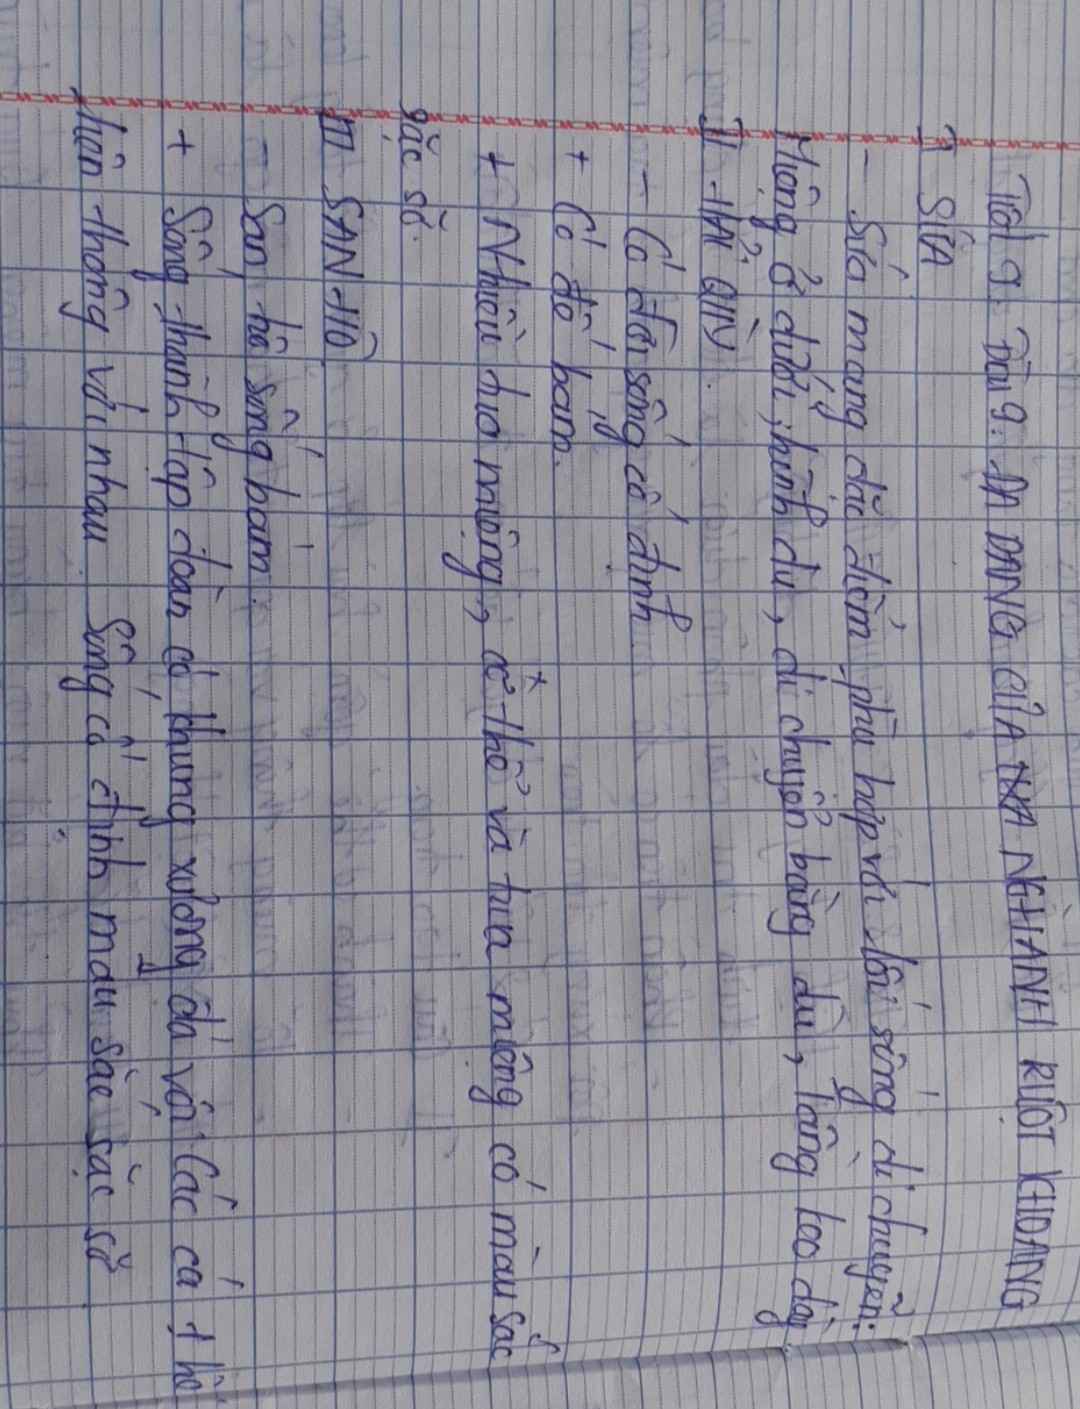 Tiết 9. Bài 9: ĐA DẠNG CỦA NGHÀNH RUỘT KHOANG
I SỨA
- Sứa mang đăc điểm phù hợp với lối sống di chuyển:
Miệng ở dưới, hình dù, di chuyển bằng dù, tầng keo dày
II HẢI QUỲ.
- Có đời sống cố định
+ Có đế bám.
+ Nhiều tua miệng, cơ thể và tua miệng có màu sắc
sặc sỡ.
III SAN HÔ
- San hô sống bám.
+ Sống thành tập đoàn có khung xương đá vôi Các cá thể
liên thông với nhau. Sống cố định màu sắc sặc sỡ.